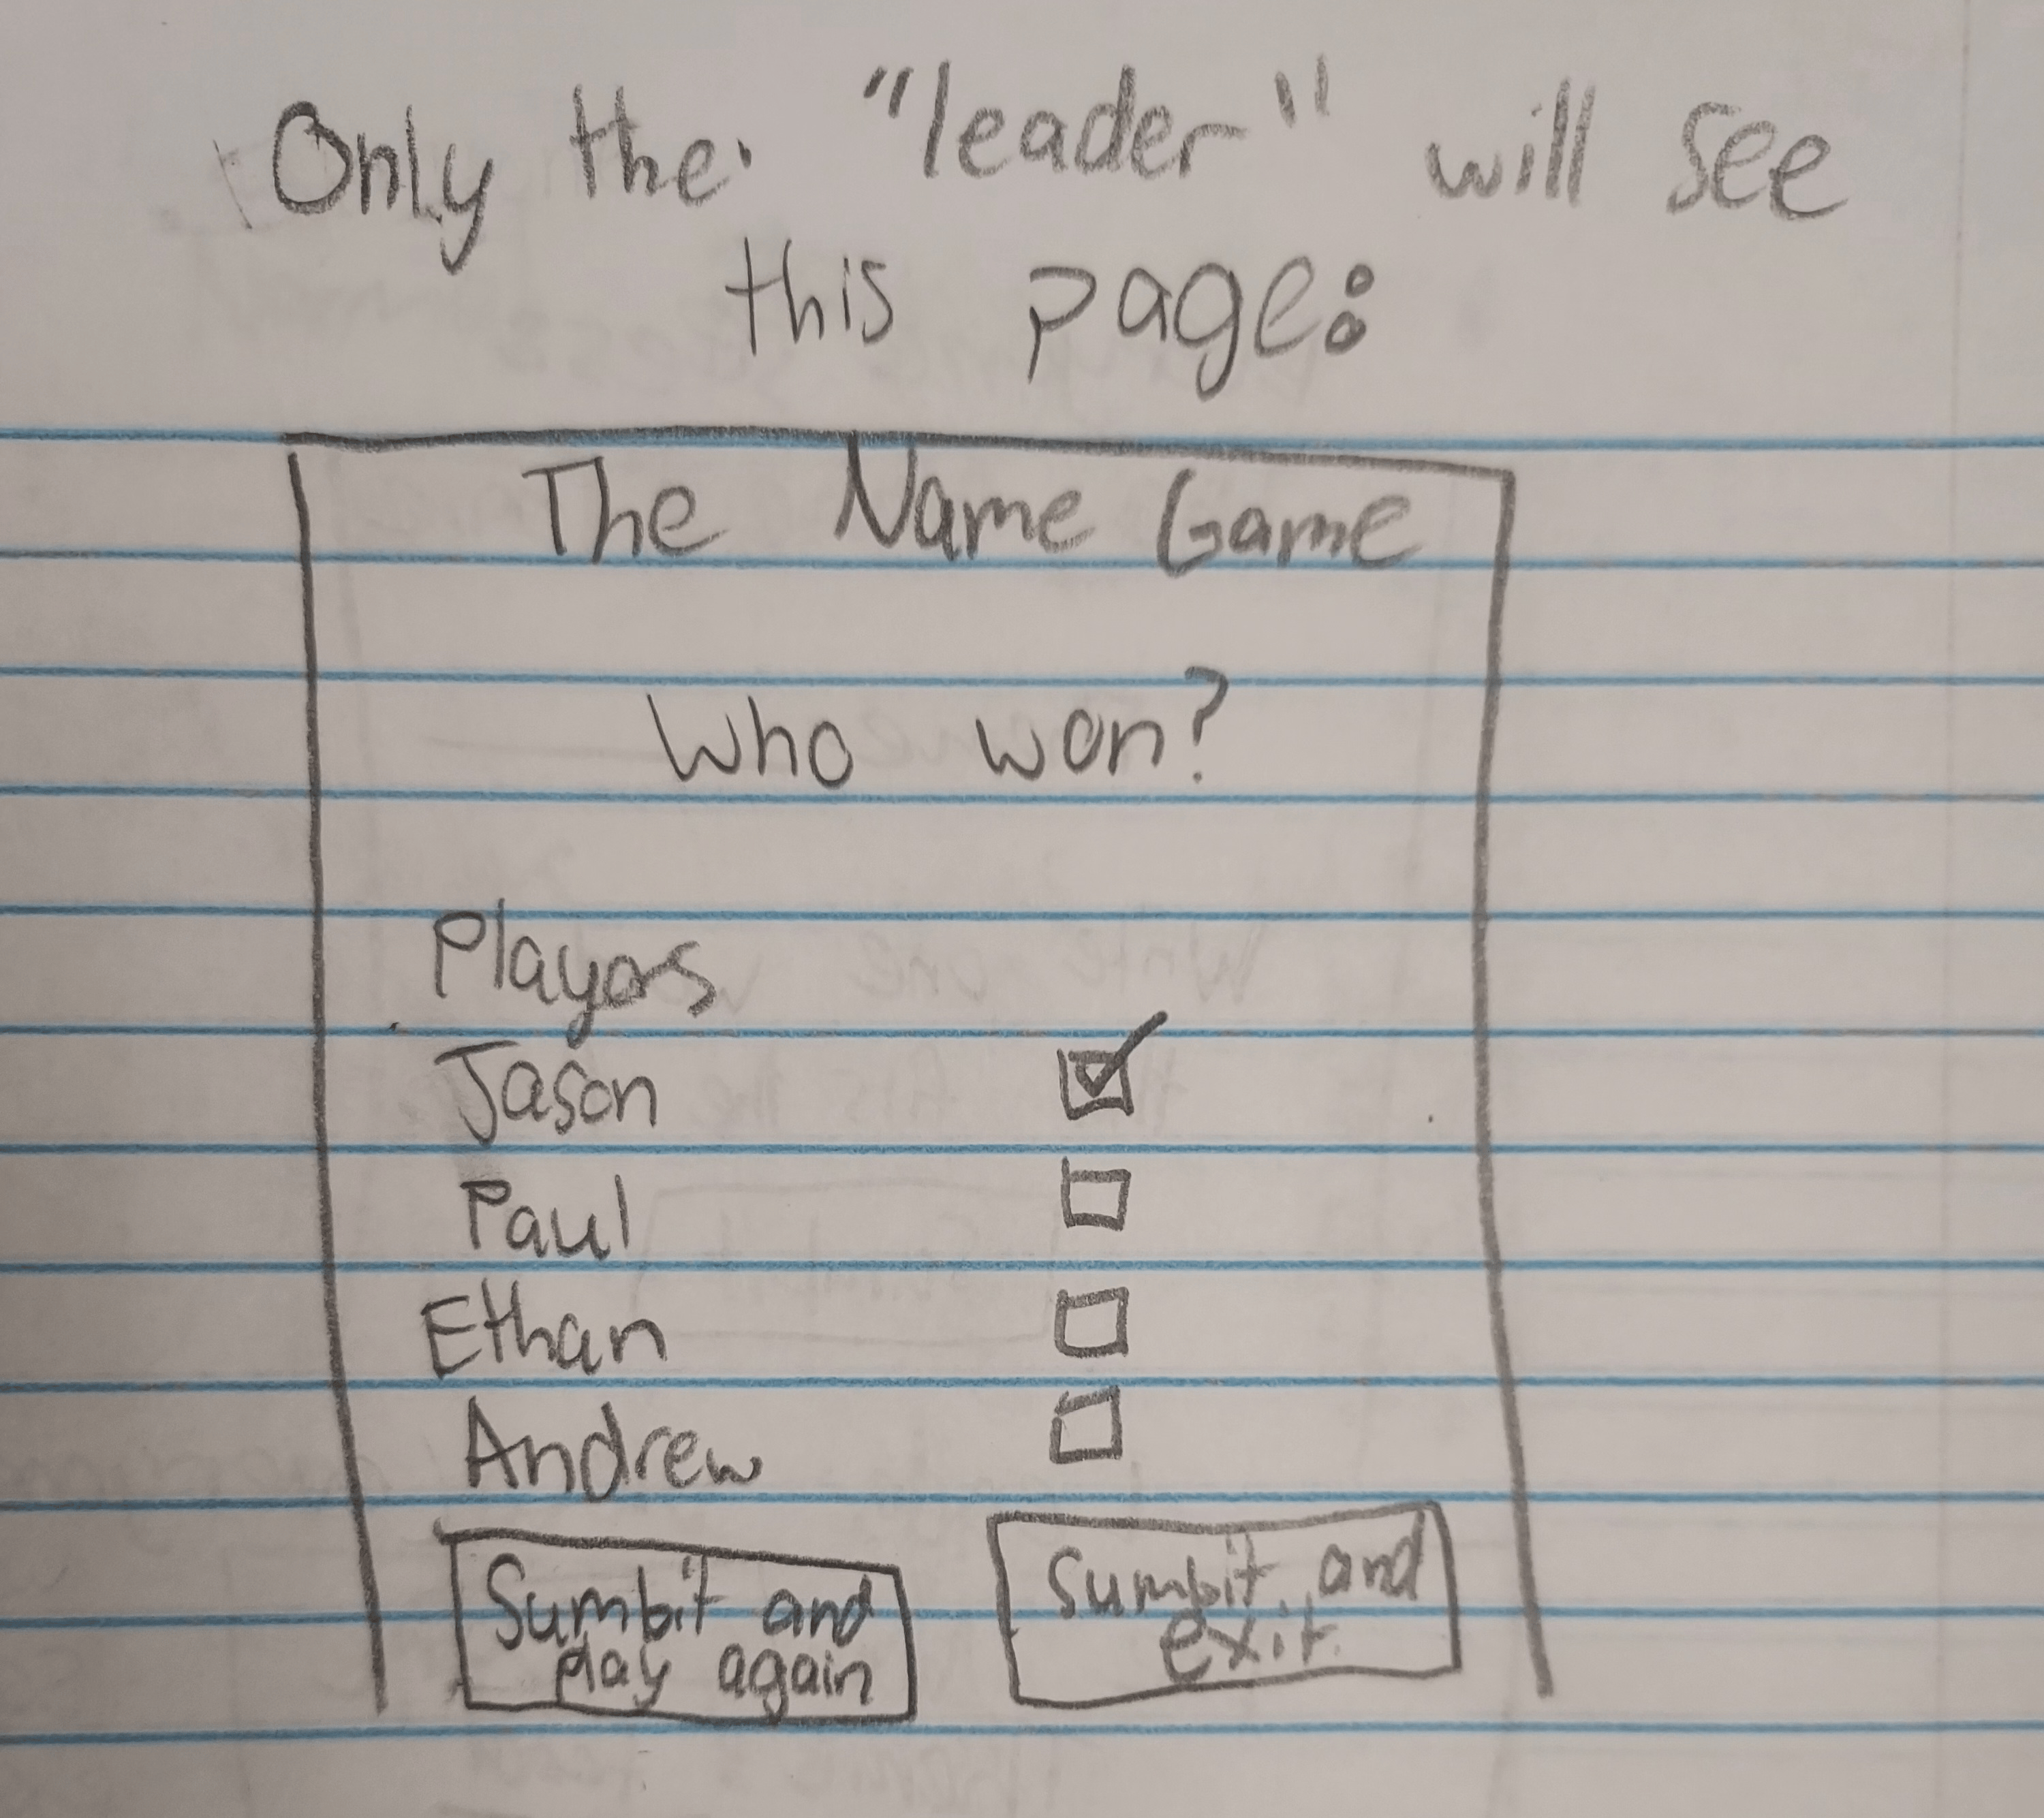 Only the "leader" will see
this page:
The Name Game
Who won?
Players
Jason
Paul
Ethan
Andrew
Sumbit and
play again
Sumbit and
exit.